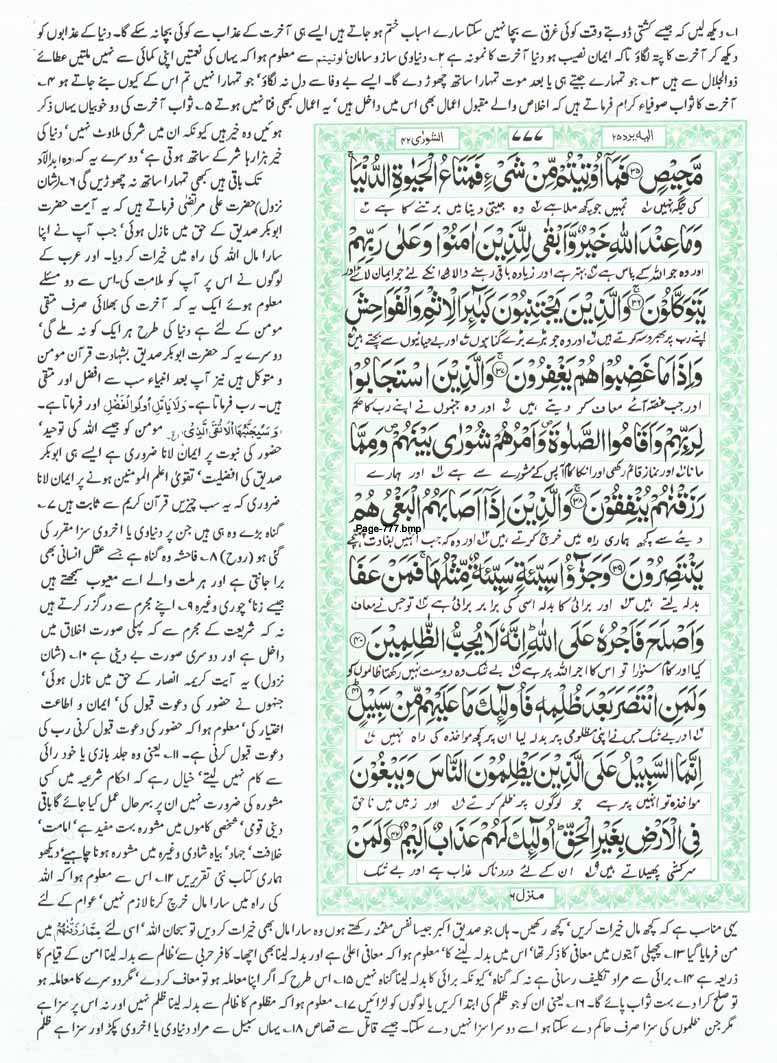 ۱۔ دیکھ لیں کہ جیسے کشتی ڈوبتے وقت کوئی غرق سے بچا نہیں سکتا سارے اسباب ختم ہو جاتے ہیں ایسے ہی آخرت کے عذاب سے کوئی بچا نہ سکے گا۔ دنیا کے عذابوں کو
دیکھ کر آخرت کا پتہ لگاؤ تاکہ ایمان نصیب ہو دنیا آخرت کا نمونہ ہے ۲۔ دنیاوی ساز و سامان' اوتیتم سے معلوم ہوا کہ یہاں کی نعمتیں اپنی کمائی سے نہیں ملتیں عطائے
ذوالجلال سے ہیں ۳۔ جو تمہارے جیتے ہی یا بعد موت تمہارا ساتھ چھوڑ دے گا۔ ایسے بے وفا سے دل نہ لگاؤ' جو تمہارا نہیں تم اس کے کیوں بنے جاتے ہو ۴۔
آخرت کا ثواب صوفیاء کرام فرماتے ہیں کہ اخلاص والے مقبول اعمال بھی اس میں داخل ہیں' یہ اعمال کبھی فنا نہیں ہوتے ۵۔ ثواب آخرت کی دو خوبیاں یہاں ذکر
ہوئیں وہ خیر ہیں کیونکہ ان میں شر کی ملاوٹ نہیں' دنیا کی
خیر ہزارہا شر کے ساتھ ہوتی ہے' دوسرے یہ کہ وہ ابدالآباد
تک باقی ہیں کبھی تمہارا ساتھ نہ چھوڑیں گی ۶۔ (شان
نزول) حضرت علی مرتضٰی فرماتے ہیں کہ یہ آیت حضرت
ابوبکر صدیق کے حق میں نازل ہوئی' جب آپ نے اپنا
سارا مال اللہ کی راہ میں خیرات کر دیا۔ اور عرب کے
لوگوں نے اس پر آپ کو ملامت کی۔ اس سے دو مسئلے
معلوم ہوئے ایک یہ کہ آخرت کی بھلائی صرف متقی
مومن کے لئے ہے دنیا کی طرح ہر ایک کو نہ ملے گی'
دوسرے یہ کہ حضرت ابوبکر صدیق بشہادت قرآن مومن
و متوکل ہیں نیز آپ بعد انبیاء سب سے افضل اور متقی
ہیں۔ رب فرماتا ہے۔ وَلَا یَاْتَلِ اُولُوا الْفَضْلِ اور فرماتا ہے۔
وَسَیُجَنَّبُهَا الْاَتْقَی الَّذِیْ مومن کو جیسے اللہ کی توحید'
حضور کی نبوت پر ایمان لانا ضروری ہے ایسے ہی ابوبکر
صدیق کی افضلیت' تقویٰ اعلم المومنین ہونے پر ایمان لانا
ضروری کہ یہ سب چیزیں قرآن کریم سے ثابت ہیں ۷۔
گناہ بڑے وہ ہی ہیں جن پر دنیاوی یا اخروی سزا مقرر کی
گئی ہو (روح) ۸۔ فاحشہ وہ گناہ ہے جسے عقل انسانی بھی
برا جانتی ہے اور ہر ملت والے اسے معیوب سمجھتے ہیں
جیسے زنا' چوری وغیرہ ۹۔ اپنے مجرم سے درگزر کرتے ہیں
نہ کہ شریعت کے مجرم سے کہ پہلی صورت اخلاق میں
داخل ہے اور دوسری صورت بے دینی ہے ۱۰۔ (شان
نزول) یہ آیت کریمہ انصار کے حق میں نازل ہوئی'
جنہوں نے حضور کی دعوت قبول کی' ایمان و اطاعت
اختیار کی' معلوم ہوا کہ حضور کی دعوت قبول کرنی رب کی
دعوت قبول کرنی ہے۔ ۱۱۔ یعنی وہ جلد بازی یا خود رائی
سے کام نہیں لیتے' خیال رہے کہ احکام شرعیہ میں کسی
مشورہ کی ضرورت نہیں ان پر بہرحال عمل کیا جائے گا باقی
دینی قومی' شخصی کاموں میں مشورہ بہت مفید ہے' امامت'
خلافت' جہاد' بیاہ شادی وغیرہ میں مشورہ ہونا چاہیے' دیکھو
ہماری کتاب نئی تقریریں ۱۲۔ اس سے معلوم ہوا کہ اللہ
کی راہ میں سارا مال خرچ کرنا لازم نہیں' عوام کے لئے
الیہ یرد ۲۵
۷۷۷
الشورٰی ۴۲
مَّحِیْصٍ ۳۵ فَمَاۤ اُوْتِیْتُمْ مِّنْ شَیْءٍ فَمَتَاعُ الْحَیٰوةِ الدُّنْیَا ۚ
کی جگہ نہیں تمہیں جو کچھ ملا ہے وہ جیتی دنیا میں برتنے کا ہے
وَمَا عِنْدَ اللّٰهِ خَیْرٌ وَّاَبْقٰی لِلَّذِیْنَ اٰمَنُوْا وَعَلٰی رَبِّهِمْ
اور وہ جو اللہ کے پاس ہے بہتر ہے اور زیادہ باقی رہنے والا انکے لئے جو ایمان لائے اور
یَتَوَكَّلُوْنَ ۳۶ وَالَّذِیْنَ یَجْتَنِبُوْنَ كَبٰٓئِرَ الْاِثْمِ وَالْفَوَاحِشَ
اپنے رب پر بھروسہ کرتے ہیں اور وہ جو بڑے بڑے گناہوں اور بے حیائیوں سے بچتے ہیں
وَاِذَا مَا غَضِبُوْا هُمْ یَغْفِرُوْنَ ۳۷ وَالَّذِیْنَ اسْتَجَابُوْا
اور جب غصہ آئے معاف کر دیتے ہیں اور وہ جنہوں نے اپنے رب کا حکم
لِرَبِّهِمْ وَاَقَامُوا الصَّلٰوةَ وَاَمْرُهُمْ شُوْرٰی بَیْنَهُمْ وَمِمَّا
مانا اور نماز قائم رکھی اور انکا کام آپس کے مشورے سے ہے اور ہمارے
رَزَقْنٰهُمْ یُنْفِقُوْنَ ۳۸ وَالَّذِیْنَ اِذَاۤ اَصَابَهُمُ الْبَغْیُ هُمْ
Page-777.bmp
دیئے سے کچھ ہماری راہ میں خرچ کرتے ہیں اور وہ کہ جب انہیں بغاوت پہنچے
یَنْتَصِرُوْنَ ۳۹ وَجَزٰٓؤُا سَیِّئَةٍ سَیِّئَةٌ مِّثْلُهَا ۚ فَمَنْ عَفَا
بدلہ لیتے ہیں اور برائی کا بدلہ اسی کی برابر برائی ہے تو جس نے معاف
وَاَصْلَحَ فَاَجْرُهٗ عَلَی اللّٰهِ ؕ اِنَّهٗ لَا یُحِبُّ الظّٰلِمِیْنَ ۴۰
کیا اور کام سنوارا تو اس کا اجر اللہ پر ہے بے شک وہ دوست نہیں رکھتا ظالموں کو
وَلَمَنِ انْتَصَرَ بَعْدَ ظُلْمِهٖ فَاُولٰٓئِكَ مَا عَلَیْهِمْ مِّنْ سَبِیْلٍ ۴۱
اور بے شک جس نے اپنی مظلومی پر بدلہ لیا ان پر کچھ مواخذہ کی راہ نہیں
اِنَّمَا السَّبِیْلُ عَلَی الَّذِیْنَ یَظْلِمُوْنَ النَّاسَ وَیَبْغُوْنَ
مواخذہ تو انہیں پر ہے جو لوگوں پر ظلم کرتے اور زمین میں ناحق
فِی الْاَرْضِ بِغَیْرِ الْحَقِّ ؕ اُولٰٓئِكَ لَهُمْ عَذَابٌ اَلِیْمٌ ۴۲ وَلَمَنْ
سرکشی پھیلاتے ہیں ان کے لئے دردناک عذاب ہے اور بے شک
منزل ۶
یہی مناسب ہے کہ کچھ مال خیرات کریں' کچھ رکھیں۔ ہاں جو صدیق اکبر جیسا نفس مطمئنہ رکھتے ہوں وہ سارا مال بھی خیرات کر دیں تو سبحان اللہ' اسی لئے مِمَّا رَزَقْنٰهُمْ میں
من فرمایا گیا ۱۳۔ پچھلی آیتوں میں معافی کا ذکر تھا' اس میں بدلہ لینے کا' معلوم ہوا کہ معافی اعلیٰ ہے اور بدلہ لینا بھی اچھا۔ کافر حربی سے' ظالم سے بدلہ لینا امن کے قیام کا
ذریعہ ہے ۱۴۔ برائی سے مراد تکلیف رسانی ہے نہ کہ گناہ' کیونکہ برائی کا بدلہ لینا گناہ نہیں ۱۵۔ اس طرح کہ اگر اپنا معاملہ ہو تو معاف کر دے' مگر دوسرے کا معاملہ ہو
تو صلح کرا دے بہت ثواب پائے گا۔ ۱۶۔ یعنی ان کو جو ظلم کی ابتدا کریں یا لوگوں کو لڑائیں ۱۷۔ معلوم ہوا کہ مظلوم کا ظالم سے بدلہ لینا ظلم نہیں اور نہ اس پر سزا ہے
مگر جن ظلموں کی سزا صرف حاکم دے سکتا ہو اسے دوسرا سزا نہیں دے سکتا۔ جیسے قاتل سے قصاص ۱۸۔ یہاں سبیل سے مراد دنیاوی یا اخروی پکڑ اور سزا ہے ظلم